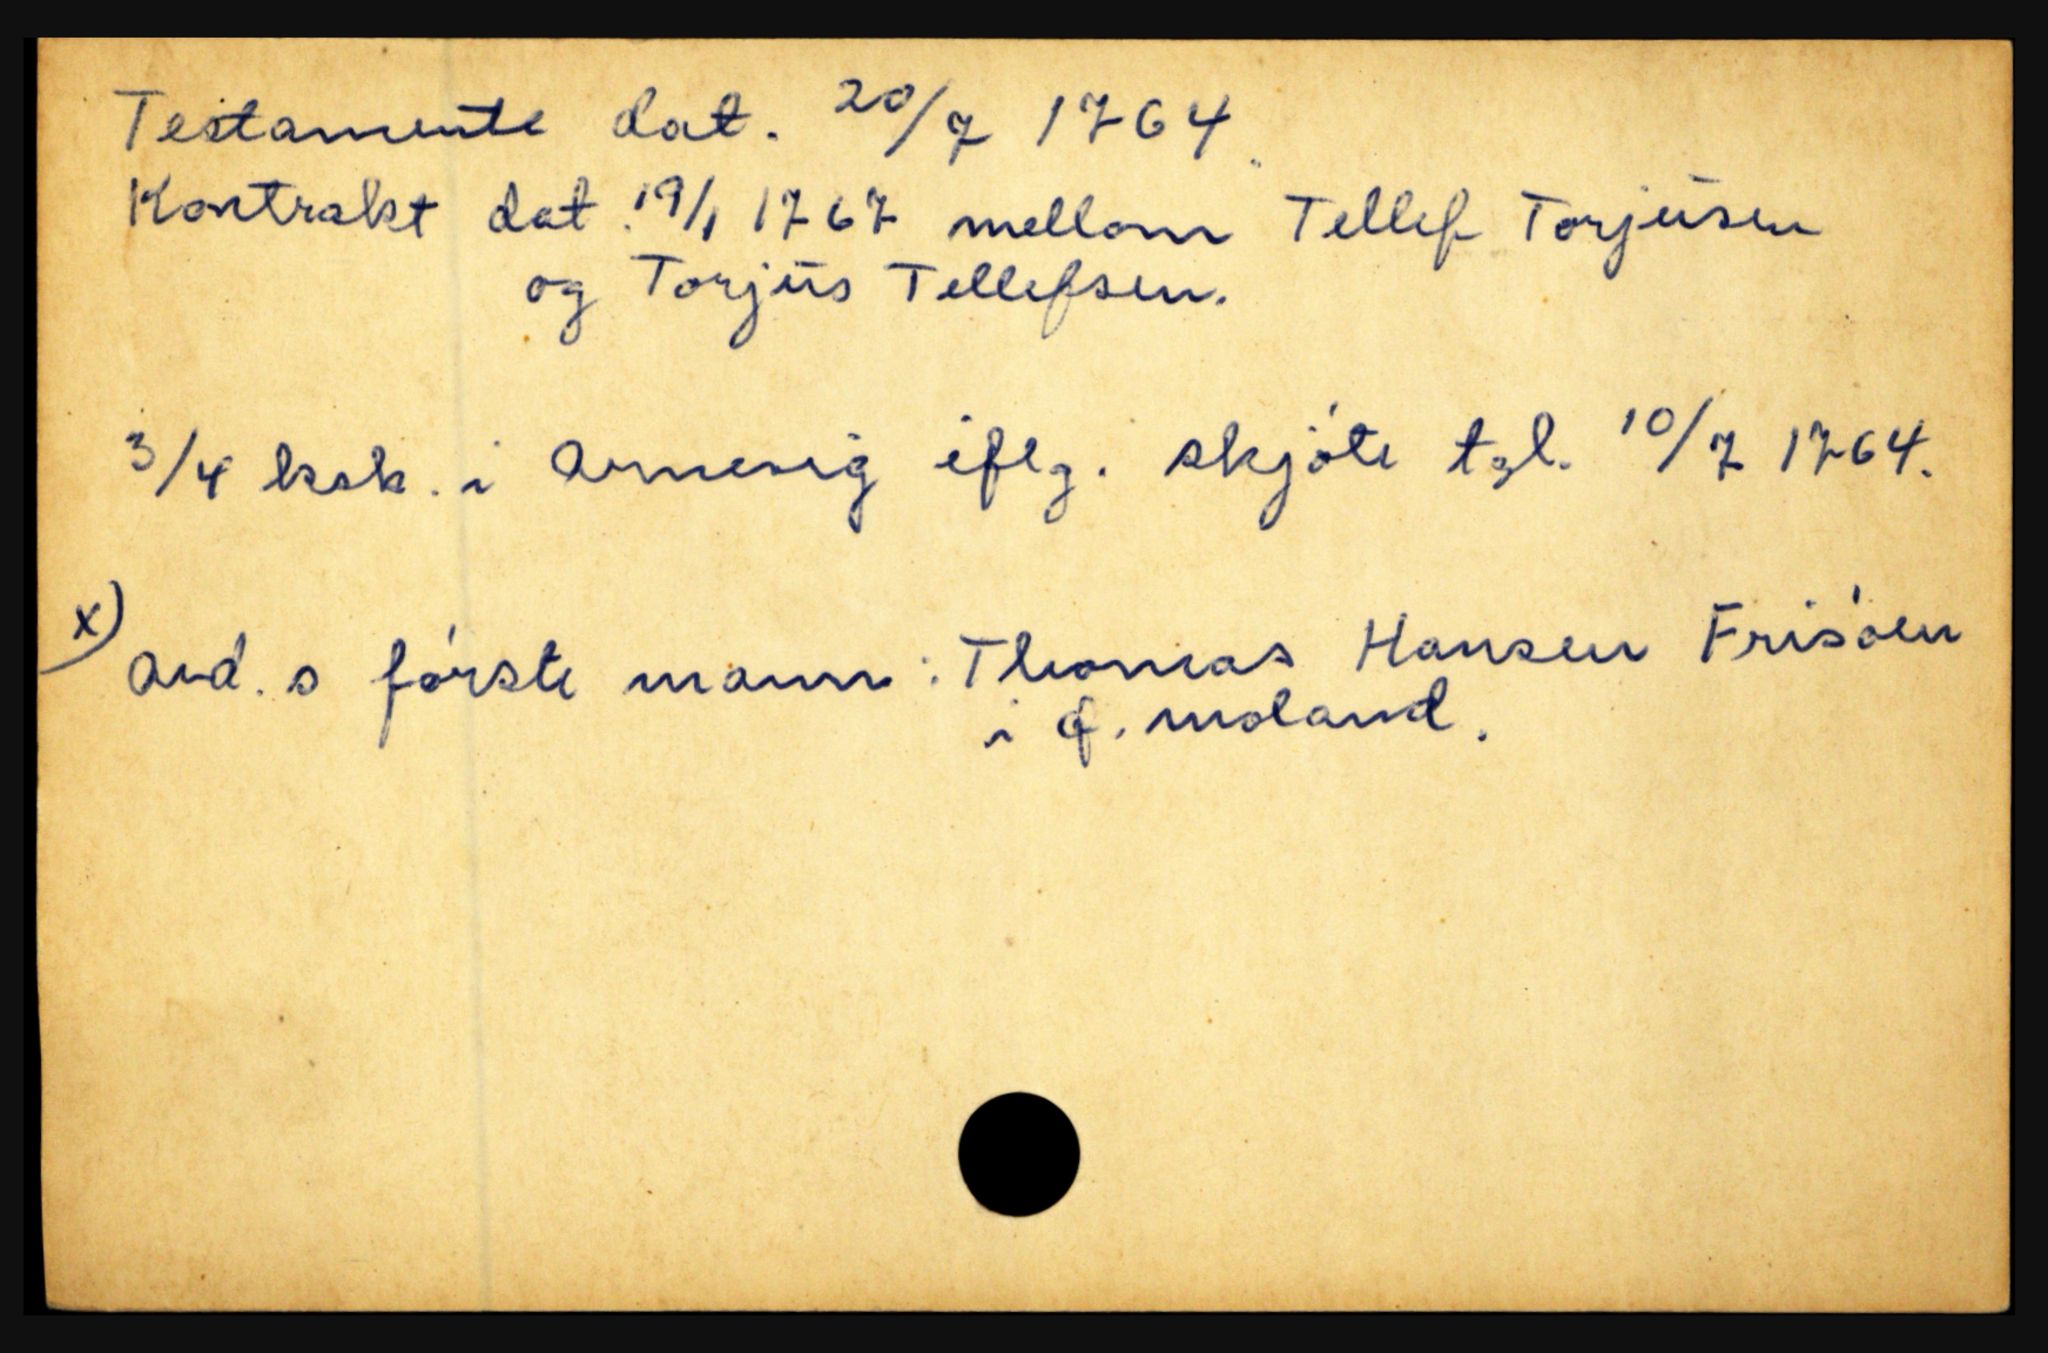 Testamente dat. 20/7 1764.
Kontrakt dat. 19/1 1767 mellom Tellef Torjusen
og Torjus Tellefsen.
3/4 ksk. i Arnevig iflg. skjóte tgl. 10/7 1764.
x) And. s fórste mann: Thomas Hansen Frisóen
i Ø. Moland.